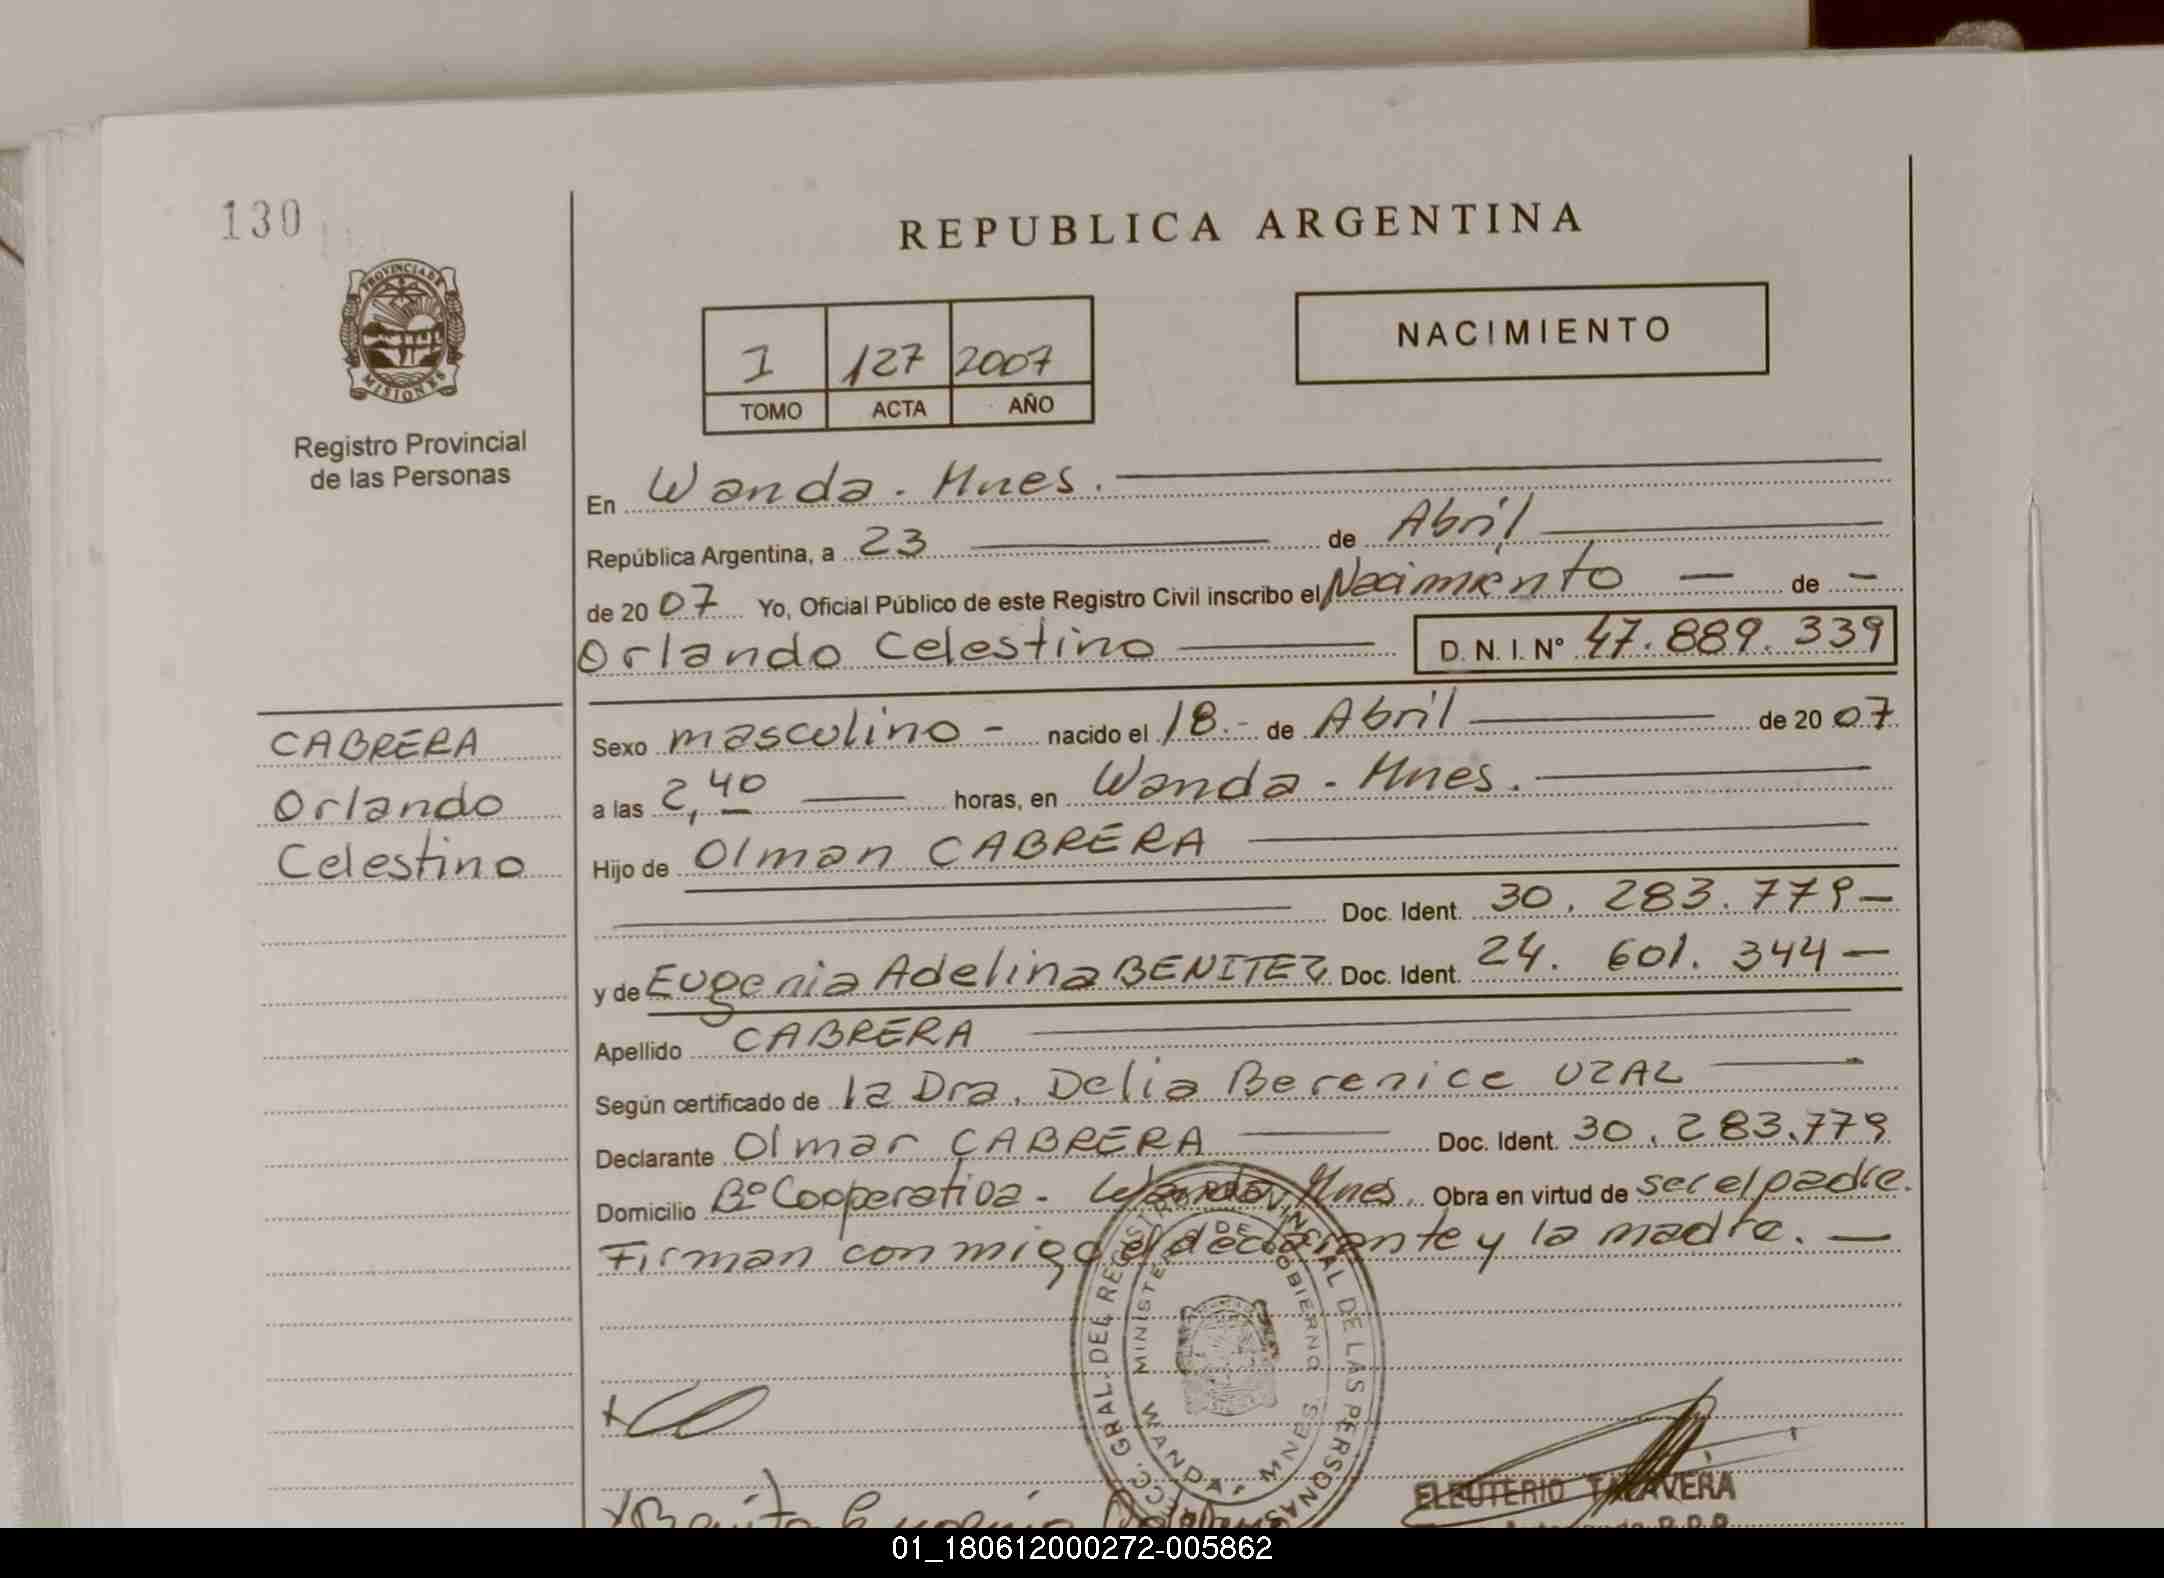 130
REPUBLICA ARGENTINA
PROVINCIA DE
MISIONES
Registro Provincial
de las Personas
I 127 2007
TOMO ACTA AÑO
NACIMIENTO
En Wanda - Mnes.
República Argentina, a 23 de Abril
de 20 07 Yo, Oficial Público de este Registro Civil inscribo el Nacimiento — de —
Orlando Celestino D. N. I. Nº 47.889.339
CABRERA
Orlando
Celestino
Sexo masculino - nacido el 18.- de Abril de 20 07
a las 2,40 horas, en Wanda - Mnes.
Hijo de Olman CABRERA
Doc. Ident. 30. 283. 779 —
y de Eugenia Adelina BENITEZ Doc. Ident. 24. 601. 344 —
Apellido CABRERA
Según certificado de la Dra. Delia Berenice UZAL
Declarante Olmar CABRERA Doc. Ident. 30. 283.779
Domicilio Bº Cooperativa - Wanda Mnes. Obra en virtud de ser el padre.
Firman conmigo el declarante y la madre. —
GRAL. DEL REGISTRO PROVINCIAL DE LAS PERSONAS
MINISTERIO DE GOBIERNO
WANDA, MNES
ELEUTERIO TALAVERA
01_180612000272-005862